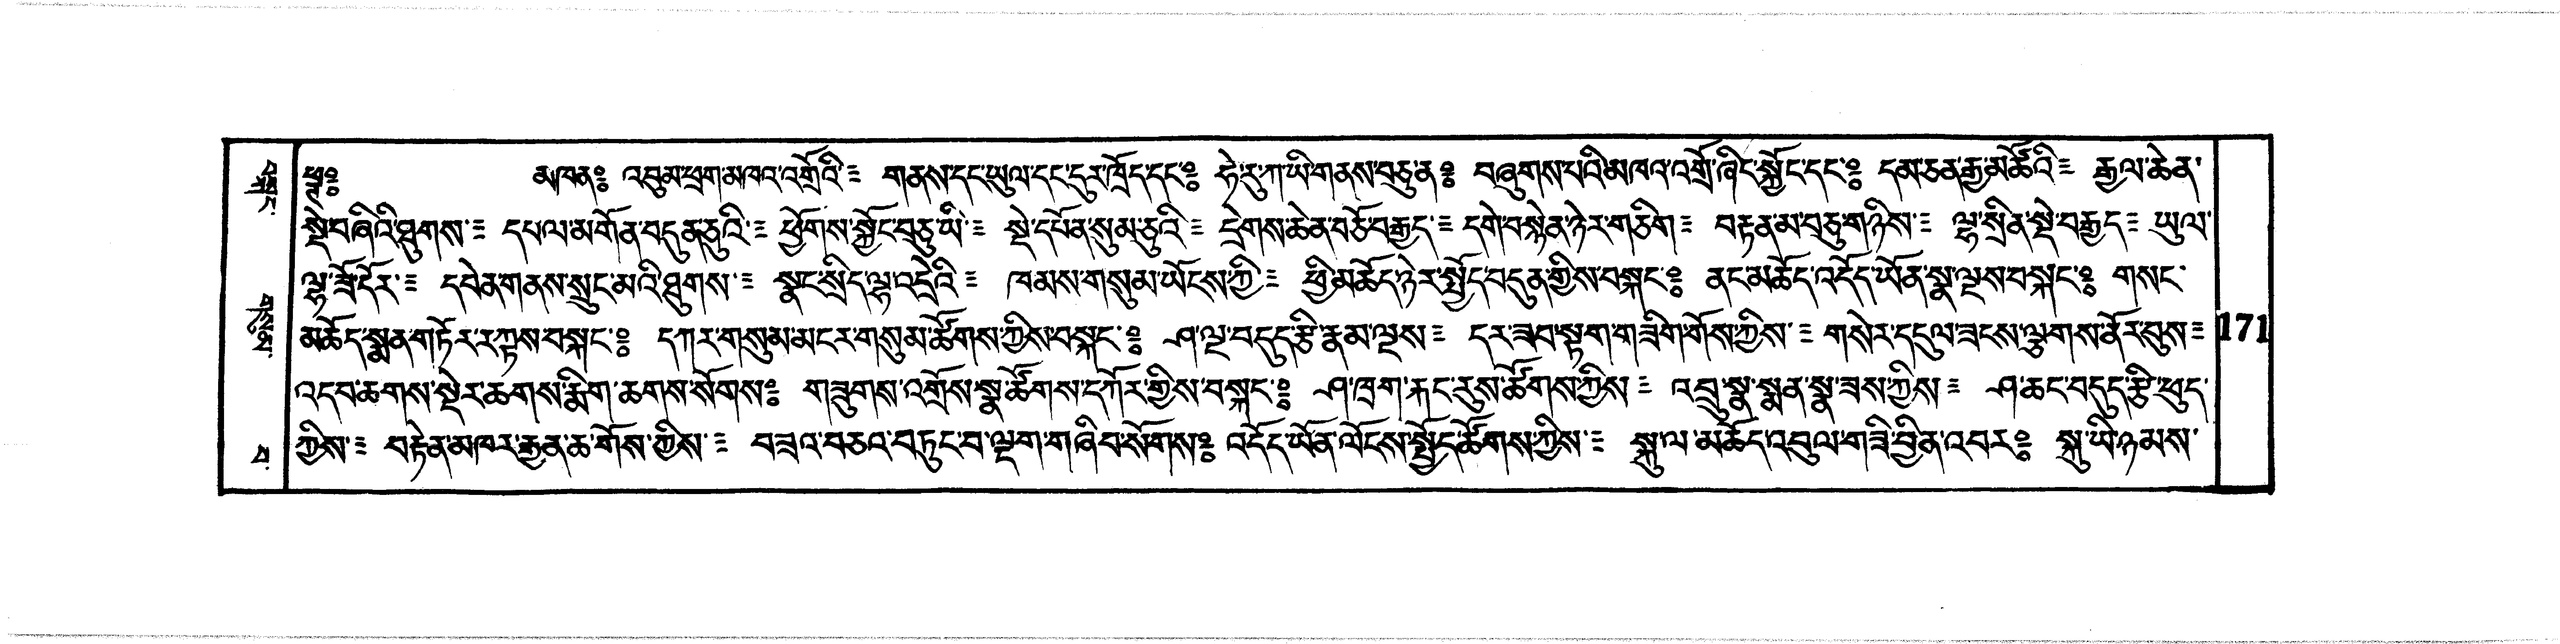 ༄༅༔ མཁན༔ འབུམ་ཕྲག་མཁའ་འགྲོའི༔ གནས་དང་ཡུལ་དང་དུར་ཁྲོད་དང༔ ཧེ་རུ་ཀ་ཡི་གནས་བཅུ་ན༔ བཞུགས་པའི་མཁའ་འགྲོ་ཞིང་སྐྱོང་དང༔ དམ་ཅན་རྒྱ་མཚོའི༔ རྒྱལ་ཆེན་
སྡེ་བཞིའི་ཐུགས༔ དཔལ་མགོན་བདུན་ཅུའི༔ ཕྱོགས་སྐྱོང་བཅུ་ཡི༔ སྡེ་དཔོན་སུམ་ཅུའི༔ དྲེགས་ཆེན་བཅོ་བརྒྱད༔ དགེ་བསྙེན་ཉེར་གཅིག༔ བརྟན་མ་བཅུ་གཉིས༔ ལྷ་སྲིན་སྡེ་བརྒྱད༔ ཡུལ་
ལྷ་ཟོ་དོར༔ དབེན་གནས་སྲུང་མའི་ཐུགས༔ སྣང་སྲིད་ལྷ་འདྲེའི༔ ཁམས་གསུམ་ཡོངས་ཀྱི༔ ཕྱི་མཆོད་ཉེར་སྤྱོད་བདུན་གྱིས་བསྐང༔ ནང་མཆོད་འདོད་ཡོན་སྣ་ལྔས་བསྐང༔ གསང་
མཆོད་སྨན་གཏོར་རཀྟས་བསྐང༔ དཀར་གསུམ་མངར་གསུམ་ཚོགས་ཀྱིས་བསྐང༔ ཤ་ལྔ་བདུད་རྩི་རྣམ་ལྔས༔ དར་ཟབ་སྟག་གཟིག་གོས་ཀྱིས༔ གསེར་དངུལ་ཟངས་ལྕགས་ནོར་བུས༔
འདབ་ཆགས་སྡེར་ཆགས་རྨིག་ཆགས་སོགས༔ གཟུགས་འགྲོས་སྣ་ཚོགས་དཀོར་གྱིས་བསྐང༔ ཤ་ཁྲག་རྐང་རུས་ཚོགས་ཀྱིས༔ འབྲུ་སྣ་སྨན་སྣ་ཟས་ཀྱིས༔ ཤ་ཆང་བདུད་རྩི་ཕུད་
ཀྱིས༔ བརྟེན་མཁར་རྒྱན་ཆ་གོས་ཀྱིས༔ བཟའ་བཅའ་བཏུང་བ་ལྡག་གཞིབ་སོགས༔ འདོད་ཡོན་ལོངས་སྤྱོད་ཚོགས་ཀྱིས༔ སྐུ་ལ་མཆོད་འབུལ་གཟི་བྱིན་འབར༔ སྐུ་ཡི་ཉམས་
171